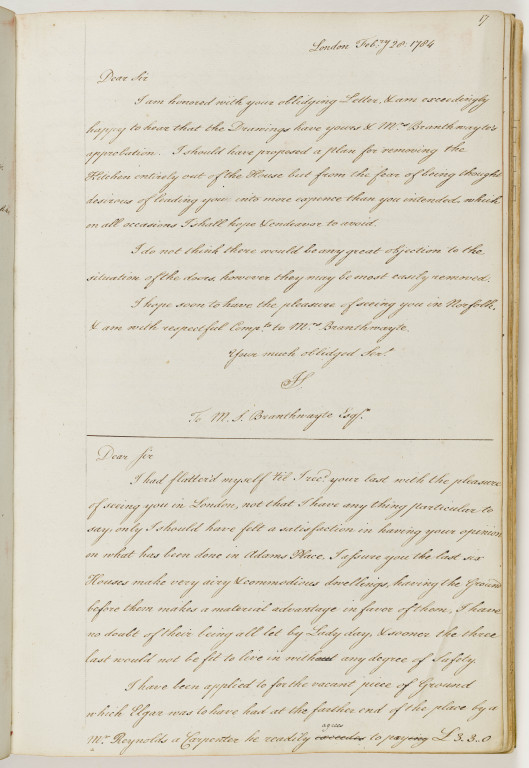 17
London Feb.ry 28. 1784
Dear Sir
I am honored with your oblidging Letter, & am exceedingly
happy to hear that the Drawings have yours & Mrs Branthwayte's
approbation. I should have proposed a plan for removing the
Kitchen entirely out of the House but from the fear of being thought
desirous of leading you into more expence than you intended, which
on all occasions I shall hope & endeavor to avoid.
I do not think there would be any great objection to the
situation of the doors, however they may be most easily removed.
I hope soon to have the pleasure of seeing you in Norfolk,
& am with respectful Comp.ts to Mrs Branthwayte.
Your much oblidged Ser.t
JS.
To M. S. Branthwayte Esq.r
Dear Sir
I had flatter'd myself 'til I rec.d your last with the pleasure
of seeing you in London, not that I have any thing particular to
say, only I should have felt a satisfaction in having your opinion
on what has been done in Adams Place, I assure you the last six
Houses make very airy & commodious dwellings, having the Ground
before them makes a material advantage in favor of them, I have
no doubt of their being all let by Lady day, & sooner the three
last would not be fit to live in without any degree of Safety.
I have been applied to for the vacant piece of Ground
which Elgar was to have had at the farther end of the place by a
Mr. Reynolds a Carpenter he readily agrees to paying £3..3..0